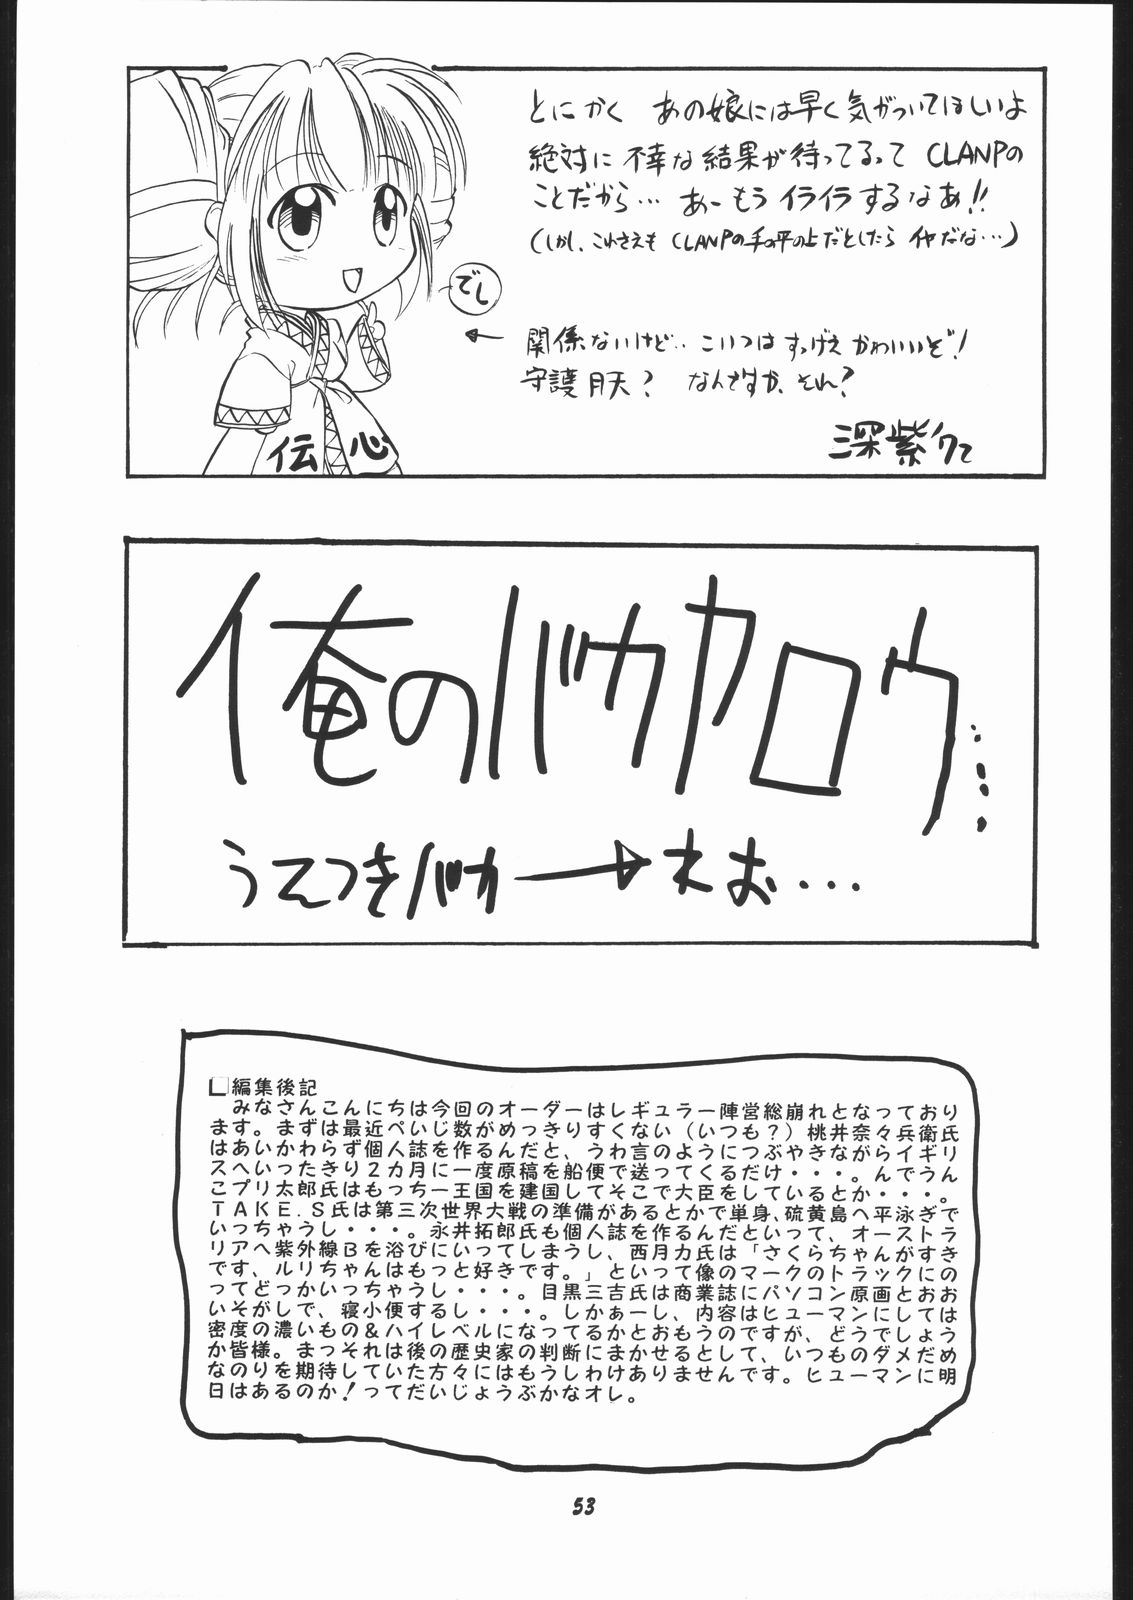 とにかく あの娘には早く気がついてほしいよ
絶対に不幸な結果が待ってるって CLANPの
ことだから… あーもうイライラするなあ!!
(しかし、これさえも CLANPの手の平の上だとしたら イヤだな…)
でし
関係ないけど‥こいつはすっげえかわいいぞ!
守護月天? なんですか、それ?
伝心
深紫
俺のバカヤロウ……
うえつきバカ→ えお…
編集後記
みなさんこんにちは今回のオーダーはレギュラー陣営総崩れとなっており
ます。まずは最近ぺいじ数がめっきりすくない(いつも?)桃井奈々兵衛氏
はあいかわらず個人誌を作るんだと、うわ言のようにつぶやきながらイギリ
スへいったきり2カ月に一度原稿を船便で送ってくるだけ・・・。んでうん
こプリ太郎氏はもっちー王国を建国してそこで大臣をしているとか・・・。
TAKE.S氏は第三次世界大戦の準備があるとかで単身、硫黄島へ平泳ぎで
いっちゃうし・・・。永井拓郎氏も個人誌を作るんだといって、オーストラ
リアへ紫外線Bを浴びにいってしまうし、西月力氏は「さくらちゃんがすき
です、ルリちゃんはもっと好きです。」といって像のマークのトラックにの
ってどっかいっちゃうし・・・。目黒三吉氏は商業誌にパソコン原画とおお
いそがしで、寝小便するし・・・。しかぁーし、内容はヒューマンにしては
密度の濃いもの&ハイレベルになってるかとおもうのですが、どうでしょう
か皆様。まっそれは後の歴史家の判断にまかせるとして、いつものダメだめ
なのりを期待していた方々にはもうしわけありませんです。ヒューマンに明
日はあるのか!ってだいじょうぶかなオレ。
53